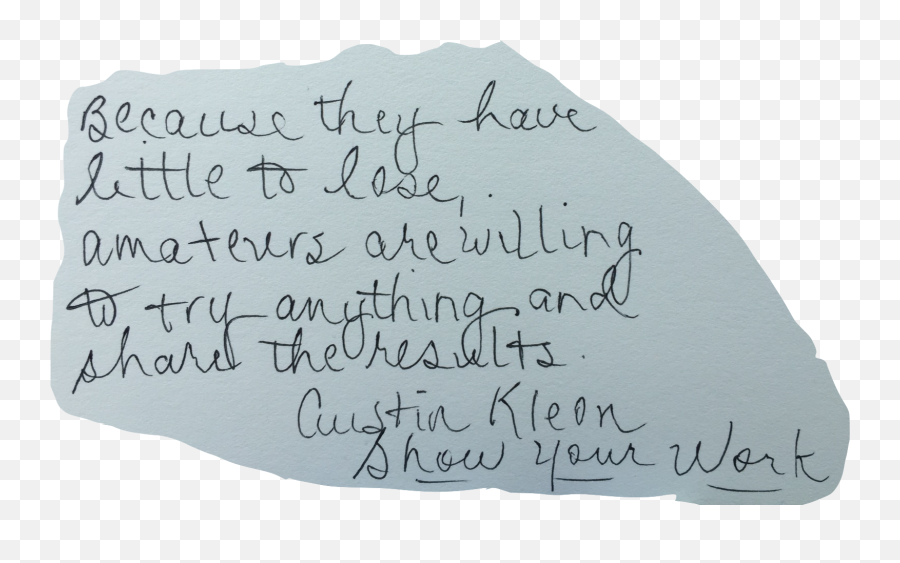 Because they have
little to lose,
amateurs are willing
to try anything and
share the results.
Austin Kleon
Show Your Work